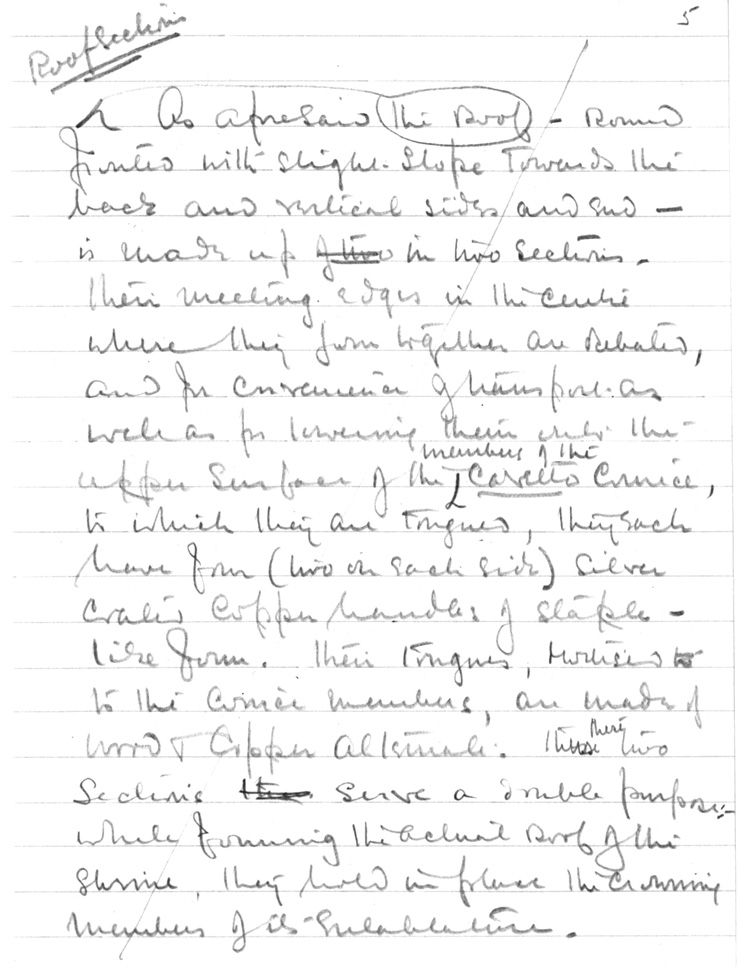 5
Roof Sections
As aforesaid the Roof - Round
fronted with slight slope towards the
back and vertical sides and end —
is made up of two in two sections.
Their meeting edges in the centre
where they join together are rebated,
and for convenience of transport as
well as for lowering them onto the
members of the
upper surface of the Cavetto Cornice,
to which they are tongued, they each
have four (two on each side) silver
coated copper handles of staple-
like form. Their tongues, mortised to
to the cornice members, are made of
wood & copper alternate. These there two
sections serve a double purpose:-
while forming the actual roof of the
shrine, they hold in place the crowning
members of its entablature.